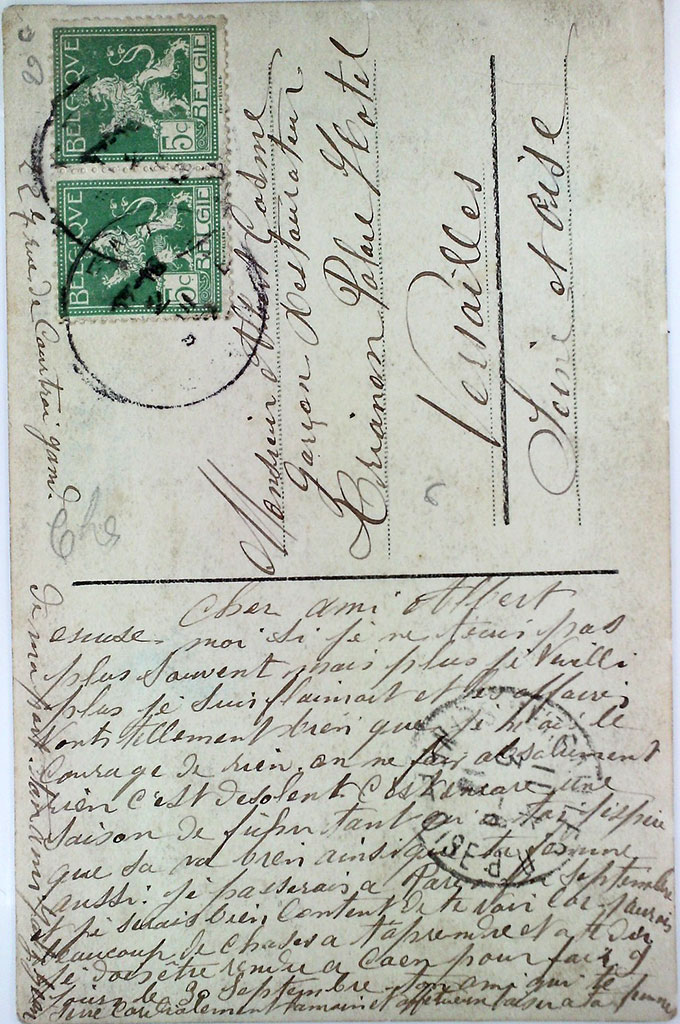 BELGIQUE
5c
BELGIE
BELGIQUE
5c
BELGIE
Monsieur Albert Cosme
garçon Restaurateur
Trianon Palace Hotel
Versailles
Seine et Oise
22 rue de Courtrai gand.
Cher ami Albert
excuse-moi si je ne t'ecris pas
plus souvent mais plus je vieilli
plus je suis flaimart et les affaires
vont tellement bien que je n'ai le
courage de rien. on ne fair absolument
rien c'est desolent c'est encore une
saison de tant a toi j'espere
que sa va bien ainsi que ta femme
aussi: je passerais a Paris en septembre
et je serais bien content de te voir car j'aurais
beaucoup de choses a t'aprendre et a te dir
je dois être rendu a Caen pour faire 9
jours le 30 septembre. ton ami qui te
serre cordialement la main et un baiser a ta femme
de ma part.